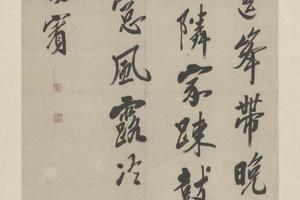 峯帶晚
隣家踈鼓
窓風露冷
賓